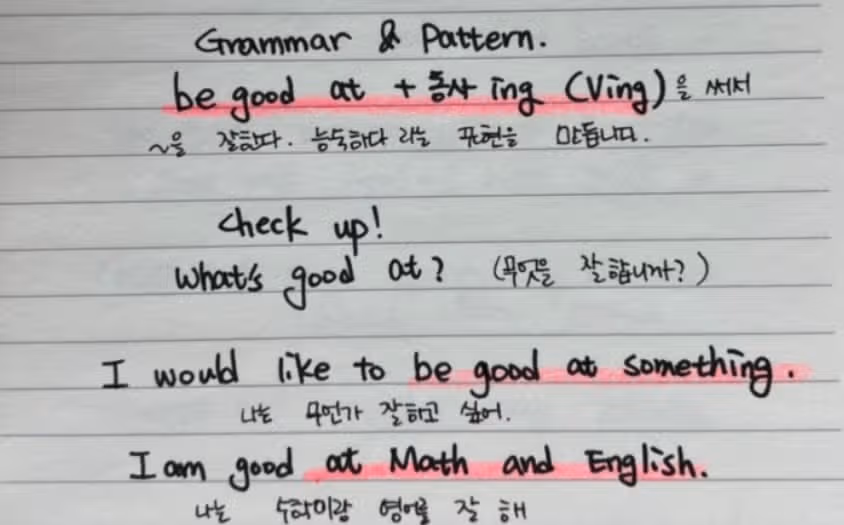 Grammar & Pattern.
be good at + 동사 ing (Ving)을 써서
~을 잘한다. 능숙하다 라는 표현을 만듭니다.
Check up!
What's good at? (무엇을 잘합니까?)
I would like to be good at something.
나는 무언가 잘하고 싶어.
I am good at Math and English.
나는 수학이랑 영어를 잘 해